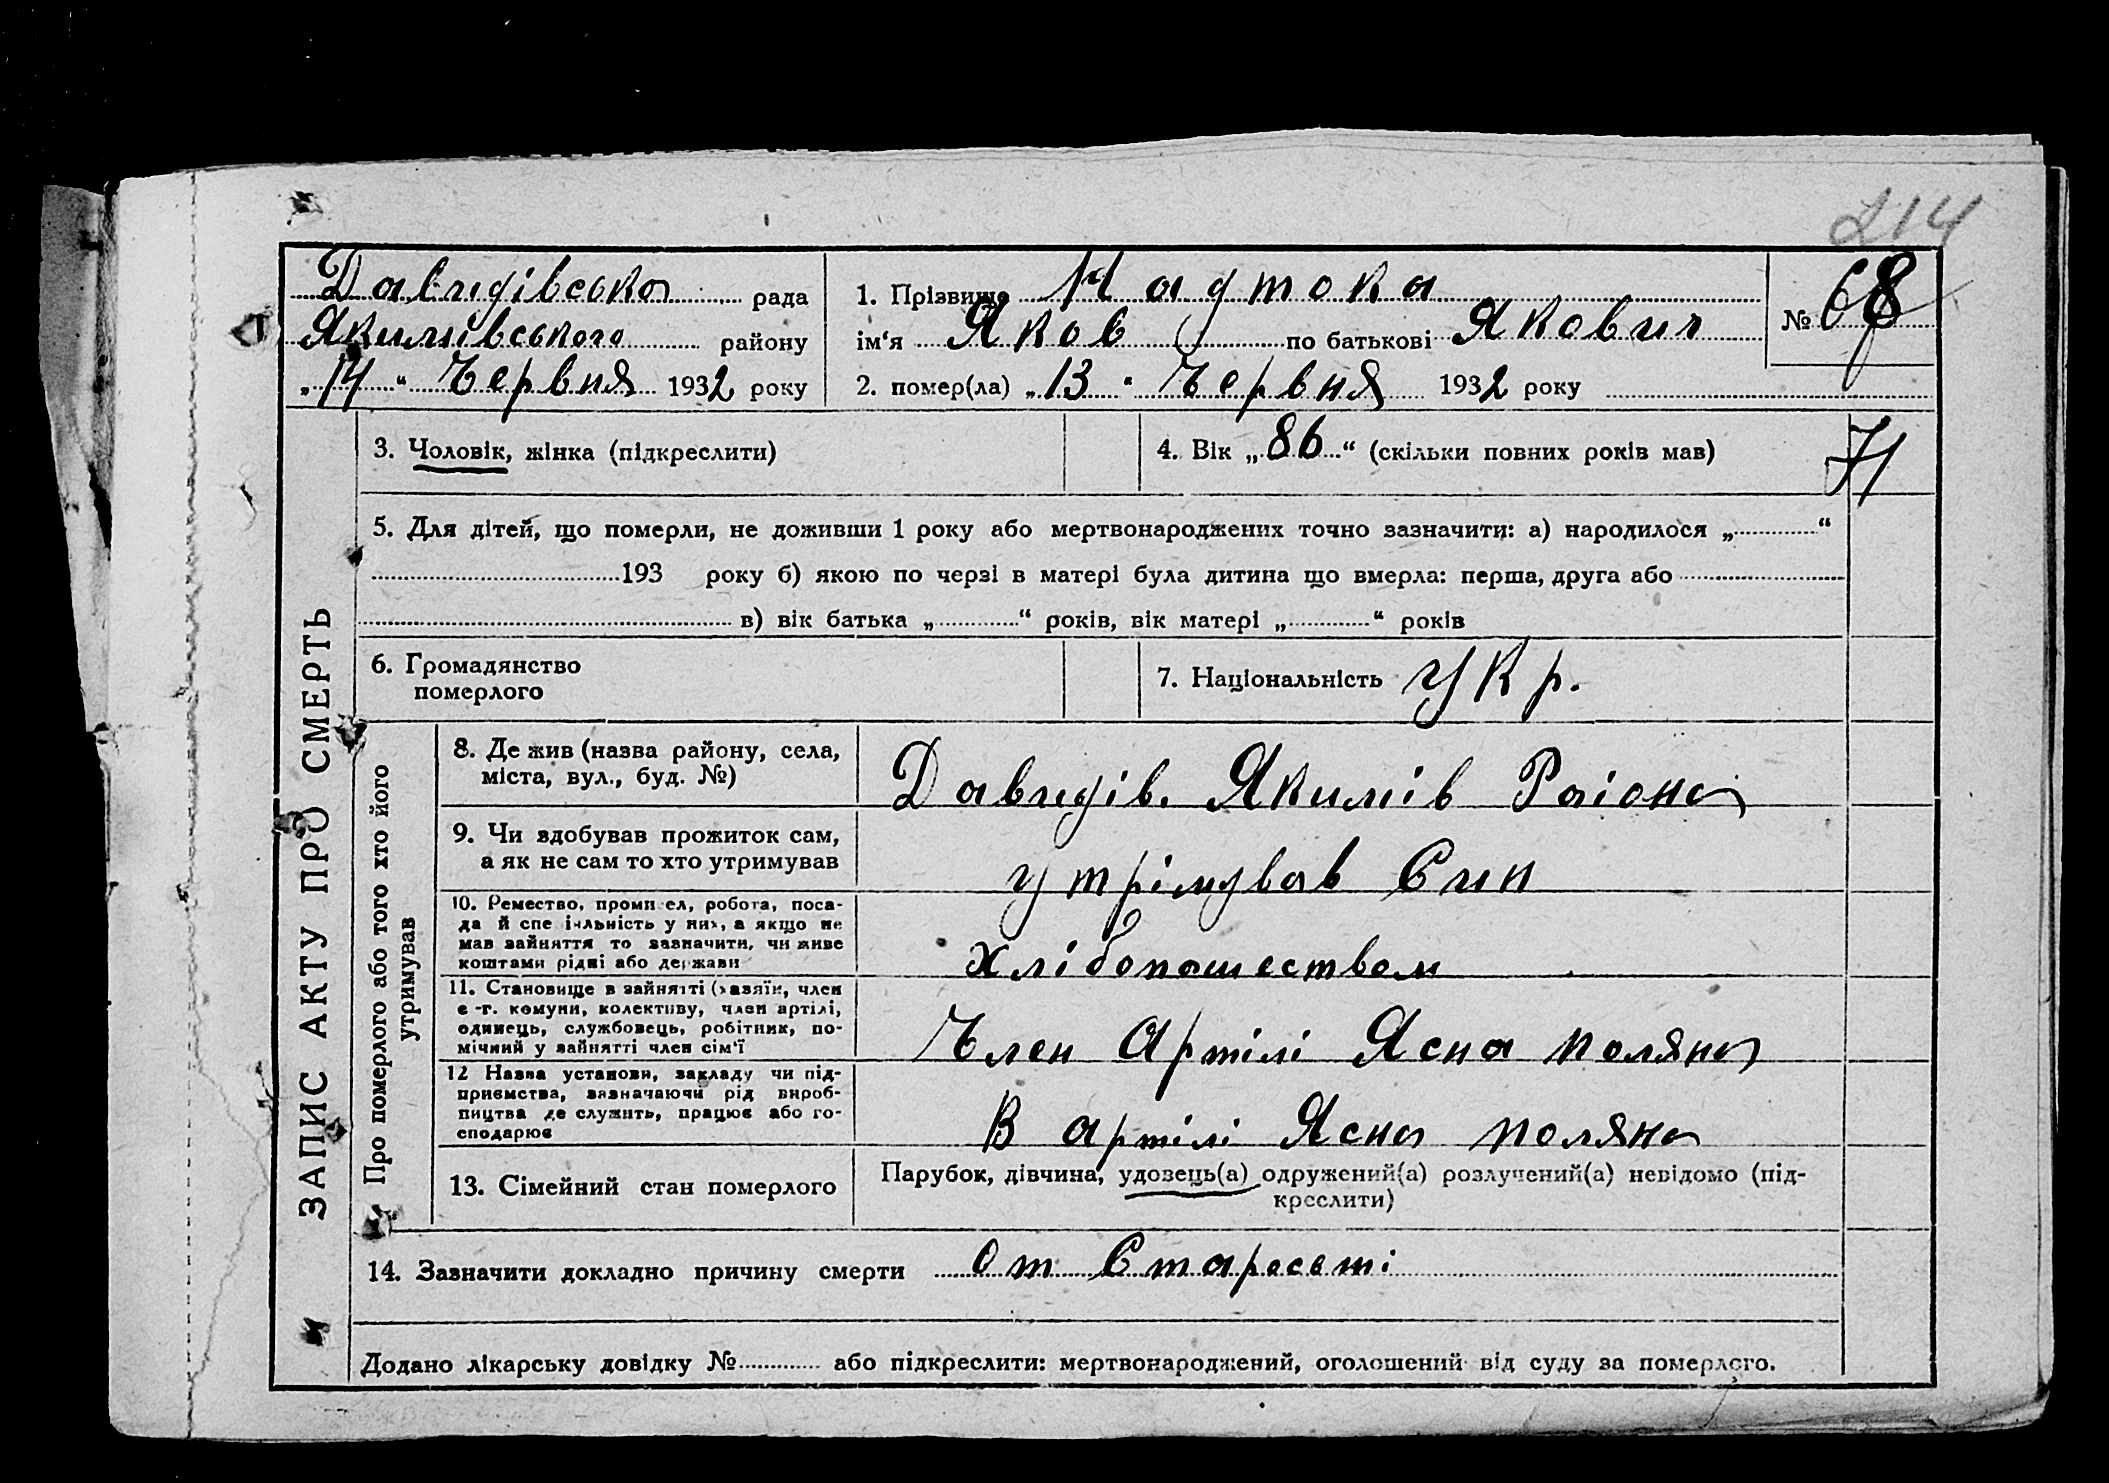 214
Давидівська рада
Якимівського району
„14“ Червня 1932 року
1. Прізвище Надтока
ім‘я Яков по батькові Якович
№ 68
2. помер(ла) „13“ Червня 1932 року
ЗАПИС АКТУ ПРО СМЕРТЬ
3. Чоловік, жінка (підкреслити)
4. Вік „86“ (скільки повних років мав)
71
5. Для дітей, що померли, не доживши 1 року або мертвонароджених точно зазначити: а) народилося „ “
193 року б) якою по черзі в матері була дитина що вмерла: перша, друга або
в) вік батька „ “ років, вік матері „ “ років
6. Громадянство
померлого
7. Національність укр.
Про померлого або того хто його
утримував
8. Де жив (назва району, села,
міста, вул., буд. №)
Давидів. Якимів Раіона
9. Чи здобував прожиток сам,
а як не сам то хто утримував
утрімував Син
10. Ремество, промисел, робота, поса-
да й спеціяльність у них, а якщо не
мав зайняття то зазначити, чи живе
коштами рідні або держави
хлібопашеством
11. Становище в зайнятті (хазяїн, член
с.-г. комуни, колективу, член артілі,
одинець, службовець, робітник, по-
мічний у зайнятті член сім‘ї
Член Артілі Ясна поляна
12 Назва установи, закладу чи під-
приємства, зазначаючи рід вироб-
ництва де служить, працює або го-
сподарює
В артілі Ясна поляна
13. Сімейний стан померлого
Парубок, дівчина, удовець(а) одружений(а) розлучений(а) невідомо (під-
креслити)
14. Зазначити докладно причину смерти от Старості
Додано лікарську довідку № або підкреслити: мертвонароджений, оголошений від суду за померлого.